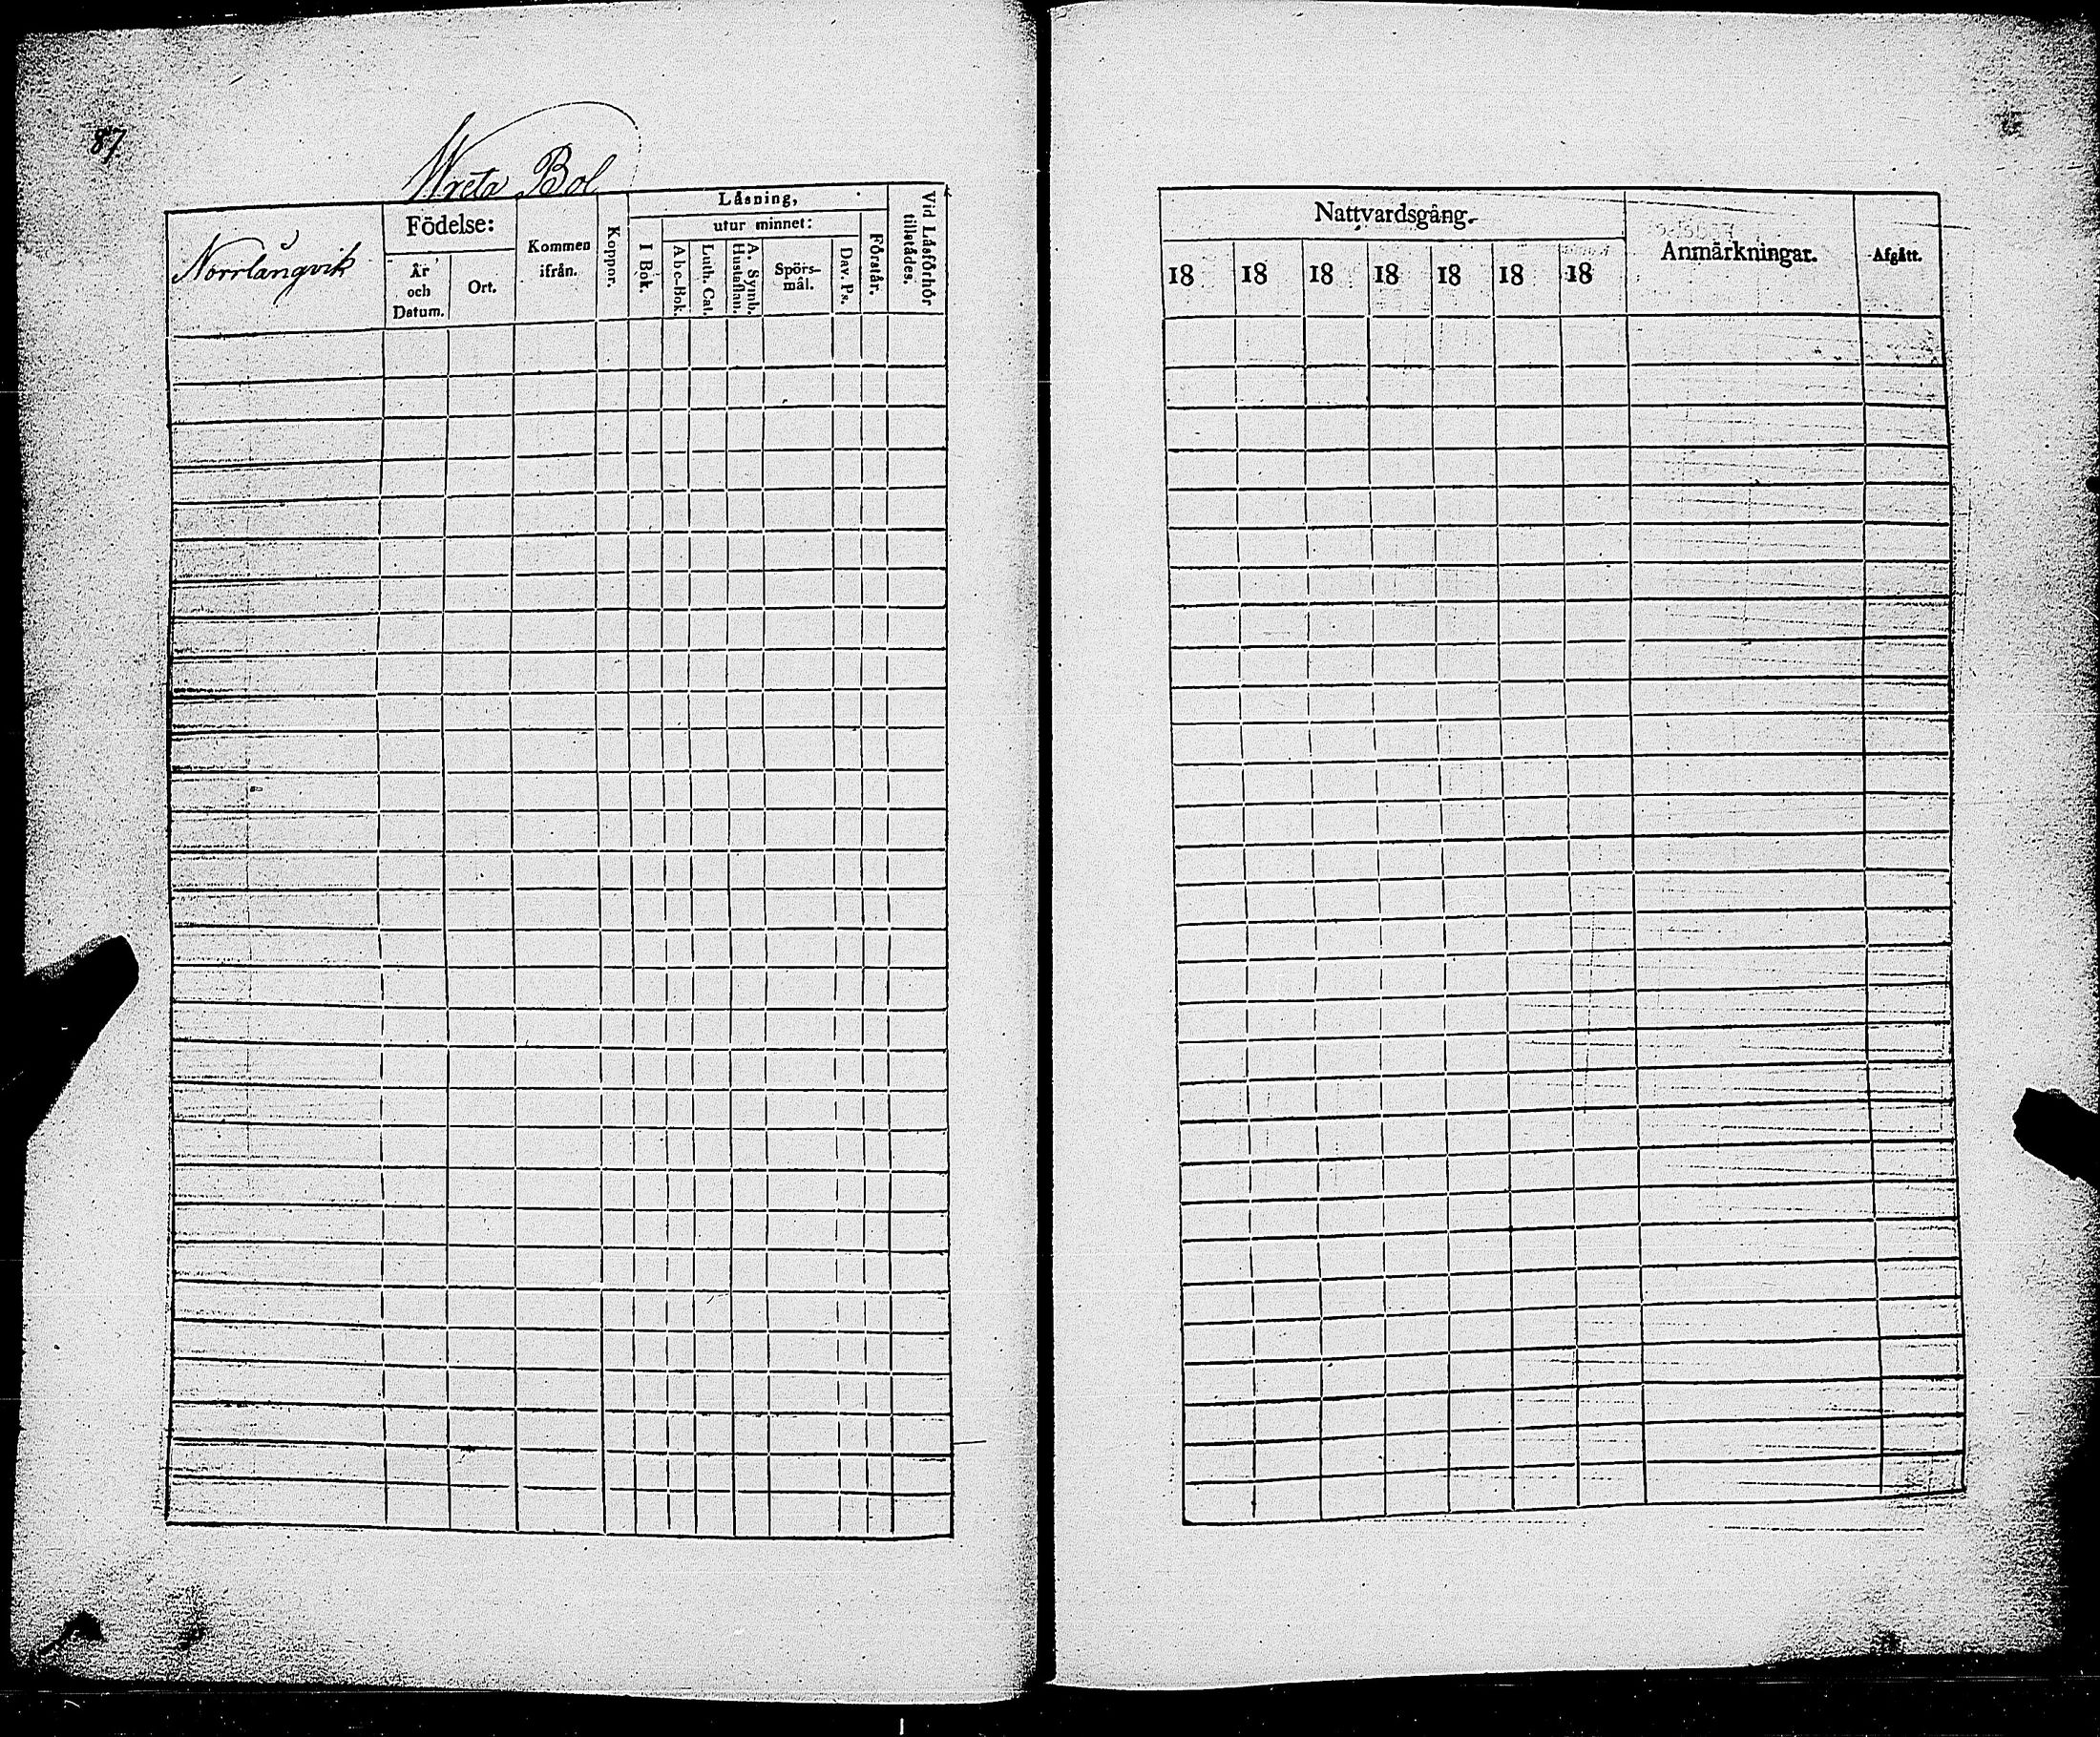 87
Wreta Bol
Norrlångvik
Födelse:
År och Datum.
Ort.
Kommen ifrån.
Koppor.
Läsning,
I Bok.
utur minnet:
Abc-Bok.
Luth. Cat.
A. Symb. Hustaflan.
Spörs-
mål.
Dav. Ps.
Förstår.
Vid Läsförhör tillstädes.
Nattvardsgång.
18 18 18 18 18 18 18
Anmärkningar.
Afgått.